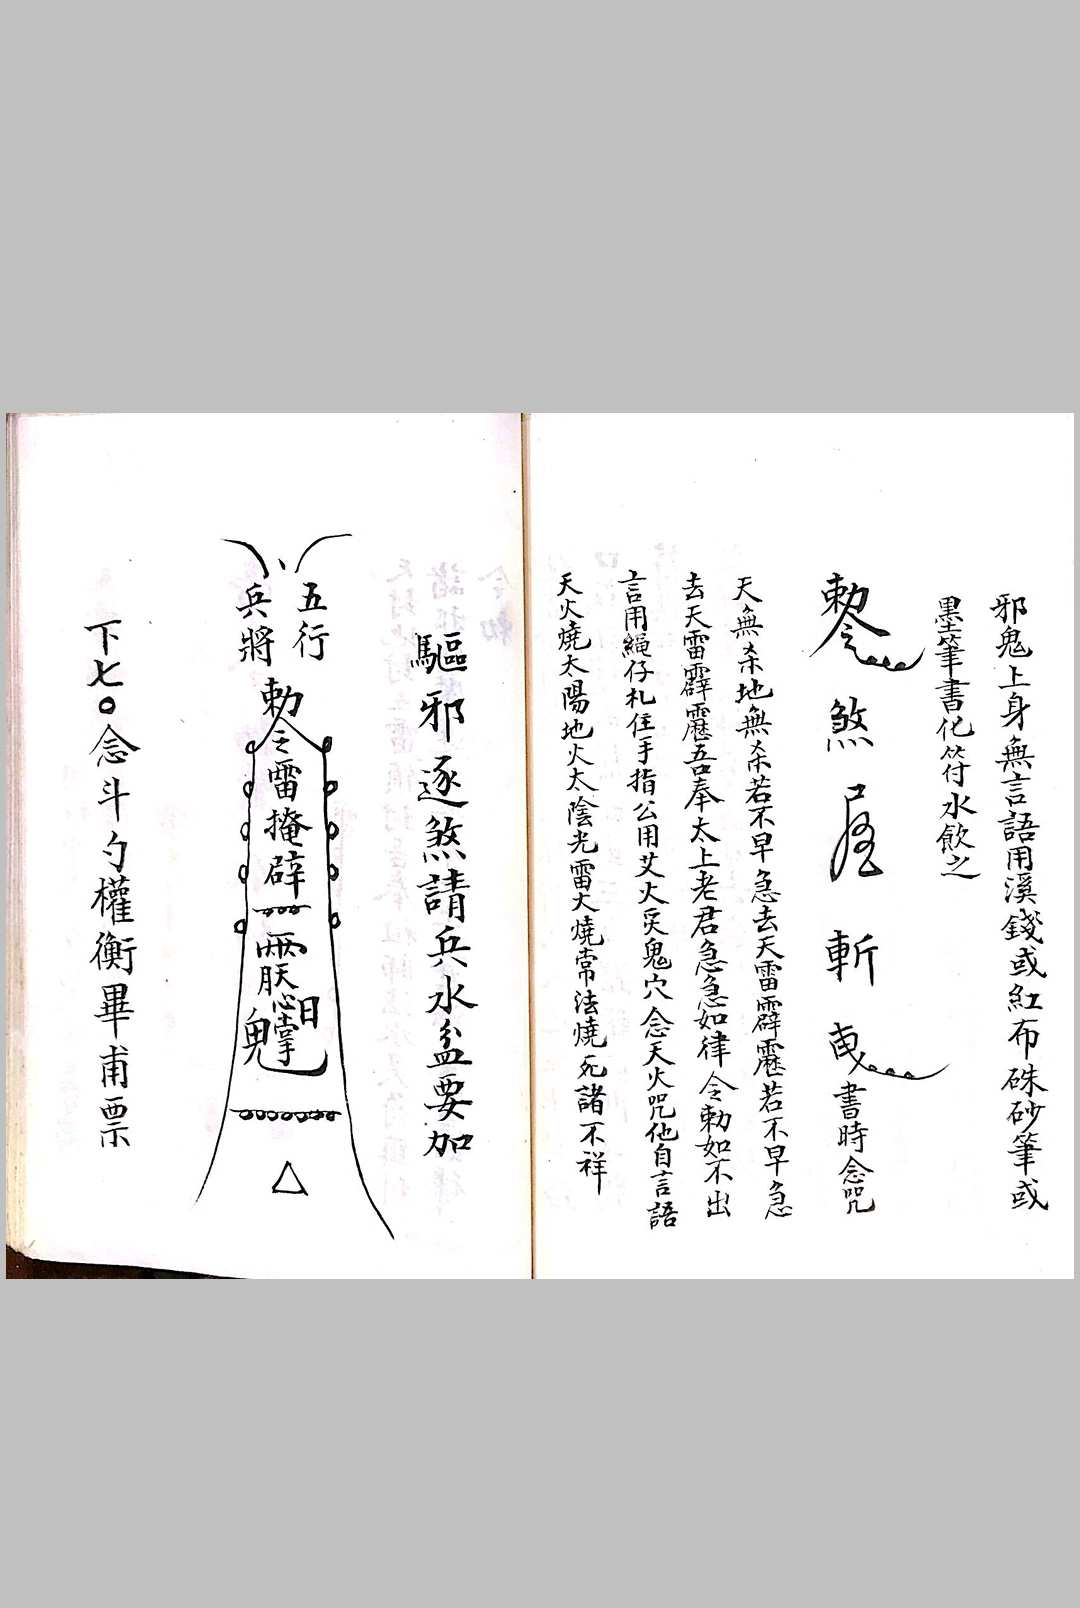 邪鬼上身無言語用溪錢或紅布硃砂筆或
墨筆書化符水飲之
敕令煞 斬 書時念咒
天無杀地無杀若不早急去天雷霹靂若不早急
去天雷霹靂吾奉太上老君急急如律令勅如不出
言用繩仔札住手指公用艾火炙鬼穴念天火咒他自言語
天火燒太陽地火太陰光雷火燒常法燒死諸不祥
驅邪逐煞請兵水盆要加
五行
兵將
勅令雷掩辟
下七〇念斗勺權衡畢甫票